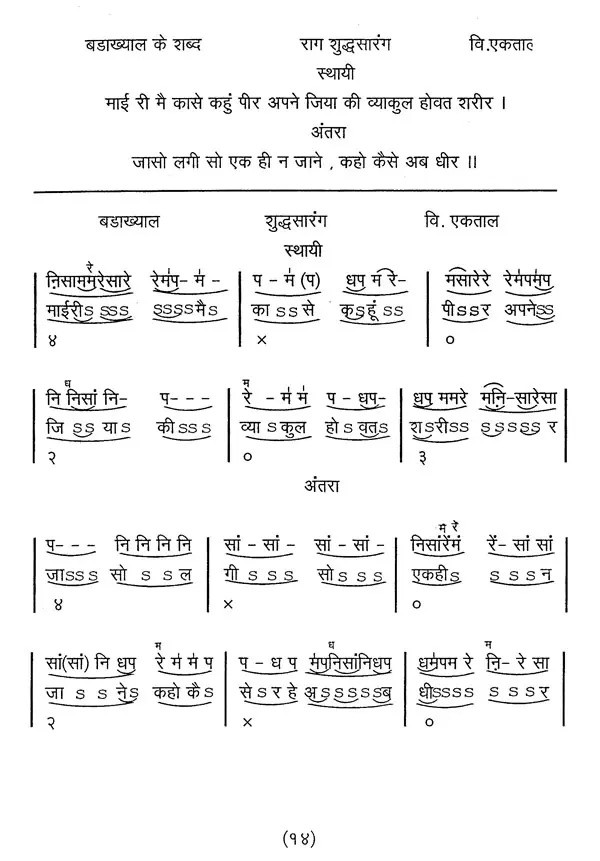 बडाख्याल के शब्द राग शुद्धसारंग वि.एकताल
स्थायी
माई री मै कासे कहुं पीर अपने जिया की व्याकुल होवत शरीर ।
अंतरा
जासो लगी सो एक ही न जाने , कहो कैसे अब धीर ॥
बडाख्याल शुद्धसारंग वि. एकताल
स्थायी
रे
नि॒साममरेसारे रेम॑प- म॑ - प - म॑ (प) धप म॑ रे- मसारेरे रेमपम॑प
माईरीऽ ऽऽऽ ऽऽऽऽमैऽ का ऽऽसे कृऽहूं ऽऽ पीऽऽर अपनेऽऽ
४ × ०
ध म॑
नि निसां नि- प- - - रे - म॑ म॑ प - धप- धप ममरे मनि॒-सारेसा
जि ऽऽ याऽ कीऽऽऽ व्या ऽकुल होऽ वतऽ शऽरीऽऽ ऽऽऽऽऽ र
२ ० ३
अंतरा
म॑ रे
प- - - नि नि नि नि सां - सां - सां - सां - निसांरेंमं रें- सां सां
जाऽऽऽ सो ऽ ऽ ल गी ऽ ऽ ऽ सो ऽ ऽ ऽ एकहीऽ ऽ ऽ ऽ न
४ × ०
म ध म
सां(सां) नि धप रे म॑ म॑ प प - ध प म॑पनिसांनिधप धम॑पम रे नि॒- रे सा
जा ऽ ऽ नेऽ कहो कैऽ सेऽरहे अऽऽऽऽऽब धीऽऽऽऽ ऽ ऽ ऽर
२ × ०
(१४)